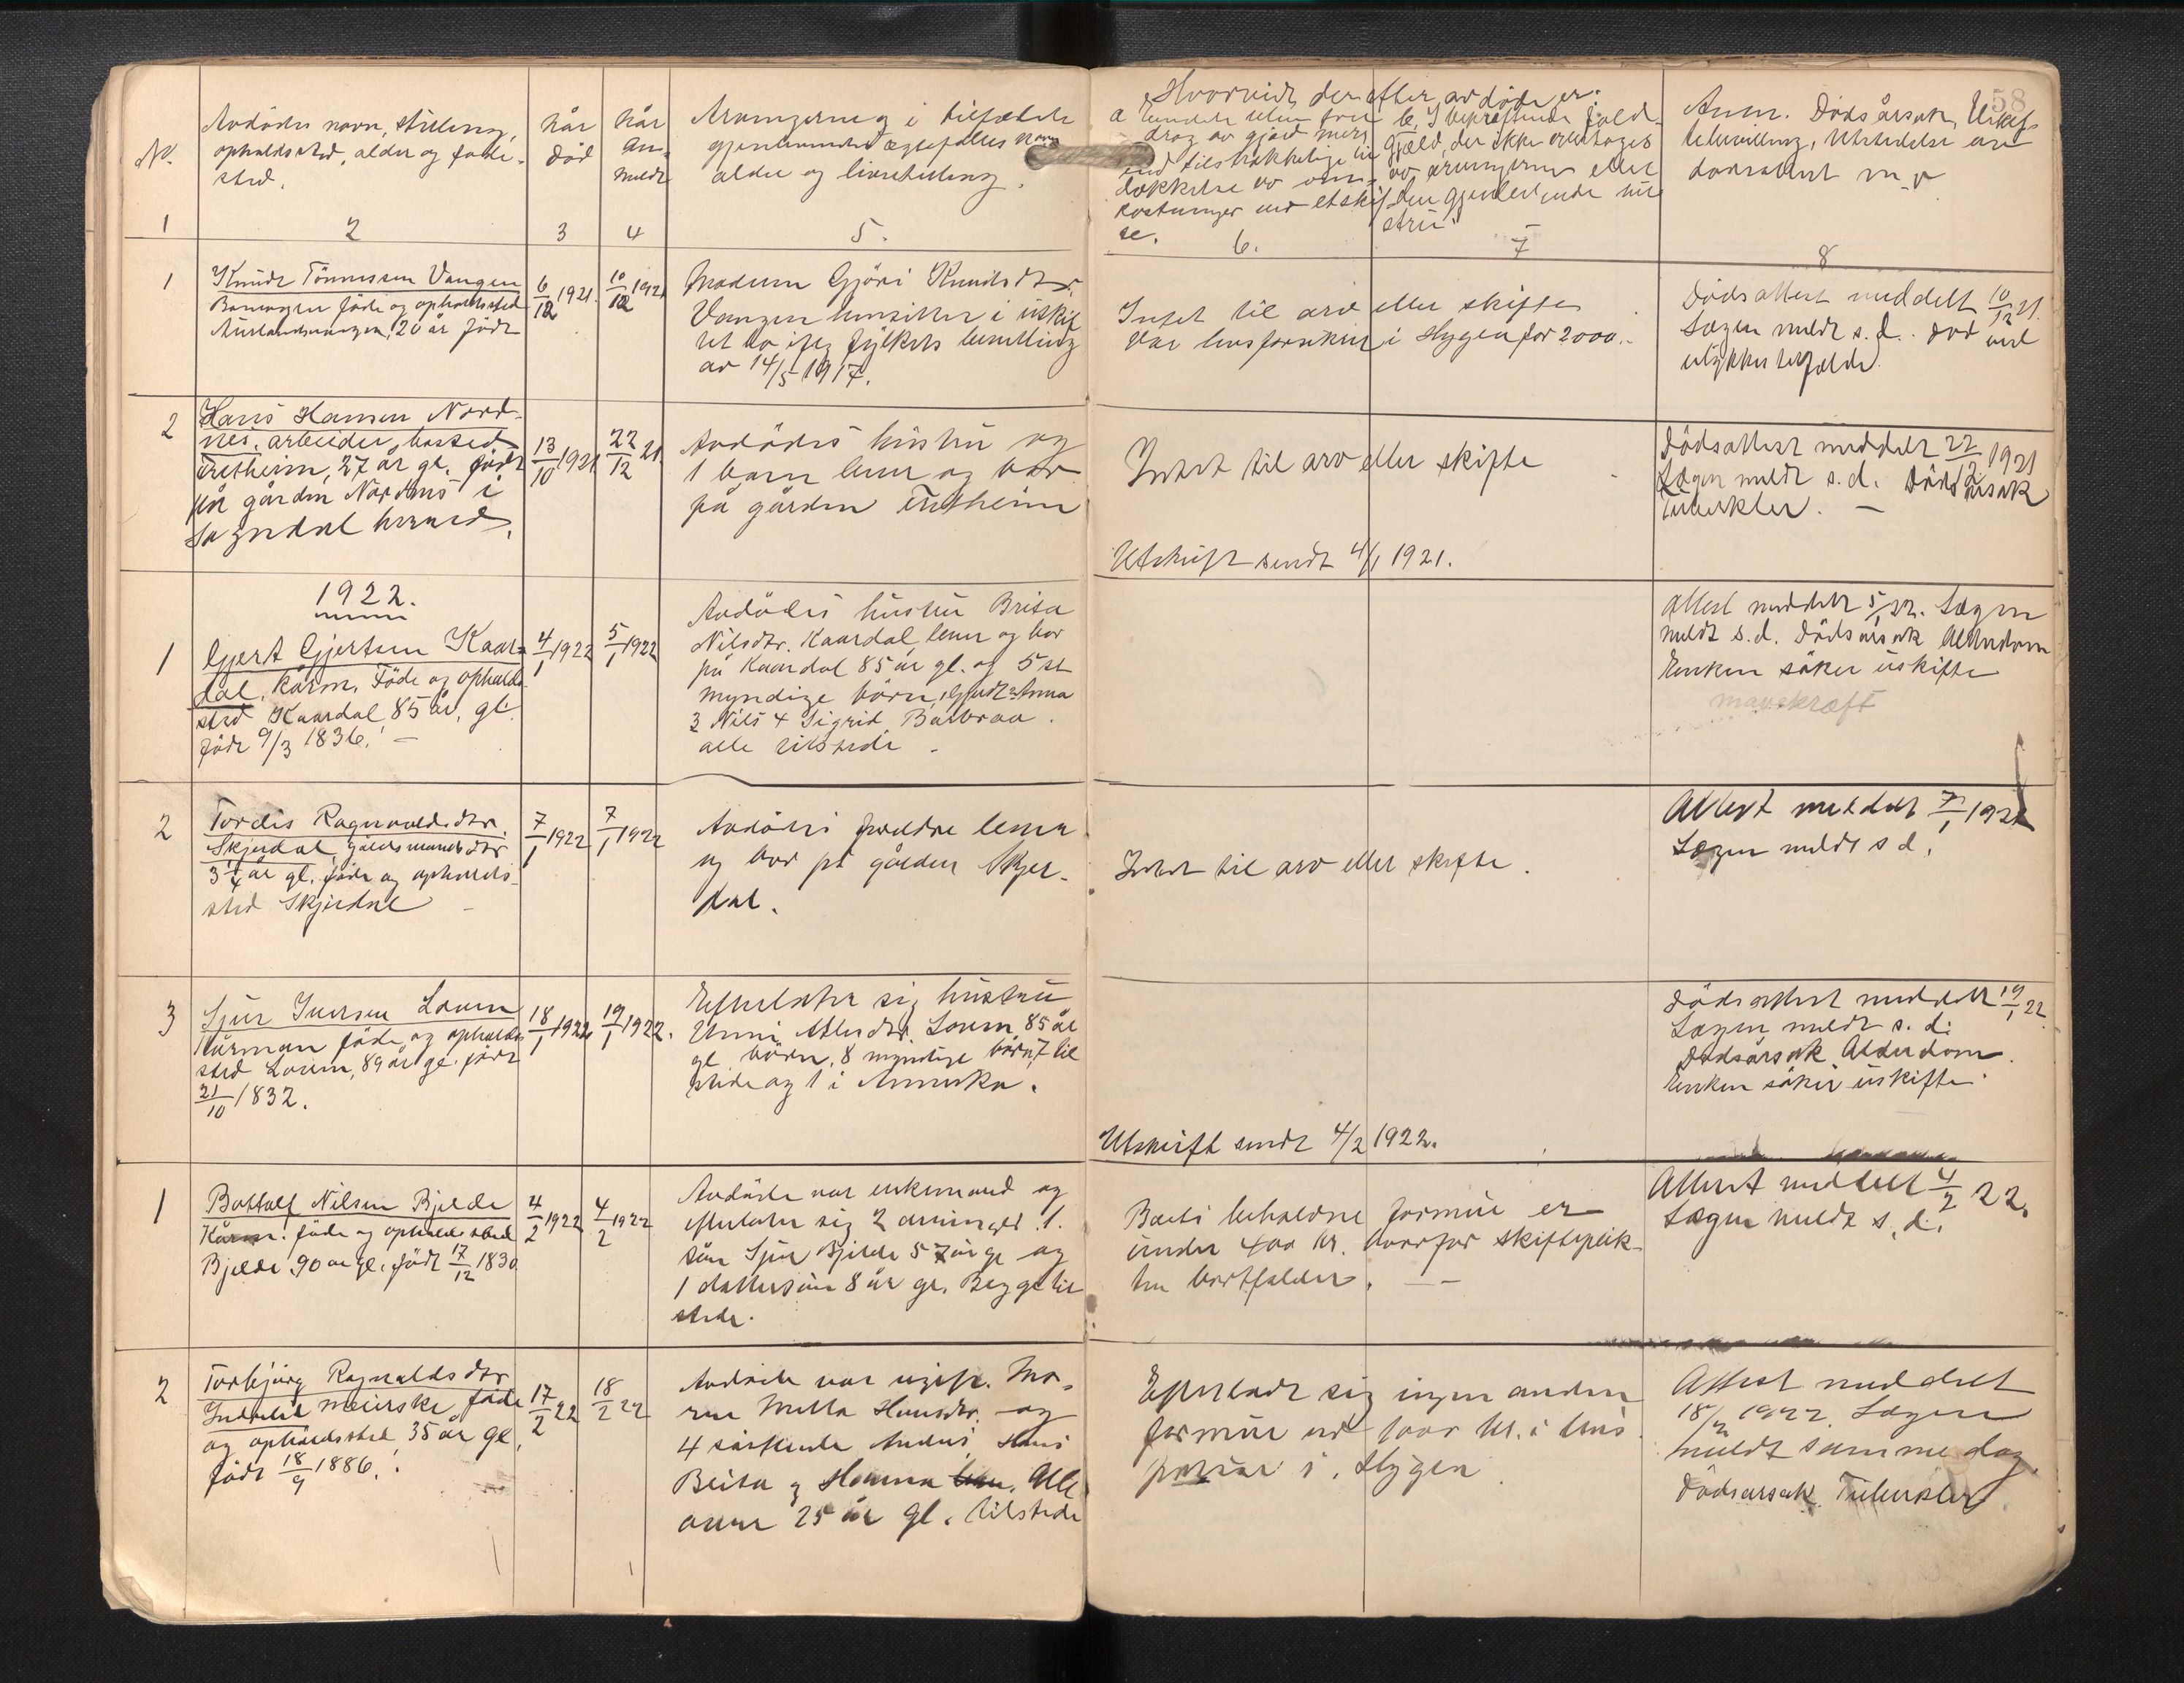 58
No.
Avdødes navn, stilling,
opholdssted, alder og føde-
sted.
når
død
når
an-
meldt
Arvingerne og i tilfælde
gjenlevende ægtefælles navn
alder og livsstilling.
Hvorvidt der efter avdøde er:
a
b,
gjæld, der ikke overtages
av arvingerne eller
den gjenlevende hu-
stru
dækkelse av om-
kostninger ved et skif-
te.
Anm. Dødsårsak, Uskift-
bevilling, Utstedelse av
dødsattest m.v
1
2
3
4
5.
6.
7
8
1
Knudt Tönnessen Vangen
føde og opholdssted
Aurlandsvangen, 20 år
6/12 1921.
10/12 1921
Moderen Gjöri Knudsdtr.
Vangen hensitter i uskif
tet bo ifflg fylkets bevilling
av 14/5 1917.
Intet til arv eller skifte
Var livsforsikret i Hygea for 2000.-
Dødsattest meddelt 10/12 21.
Lægen meldt s.d. død ved
ulykkestilfælde.
2
Hans Hansen Nord-
nes, arbeider, bosted
Fretheim, 27 år gl. født
på gården Nordnes i
Sogndal herred.
13/10 1921
22/12 21
Avdødes hustru og
1 barn lever og bor
på gården Fretheim
Intet til arv eller skifte
Dødsattest meddelt 22/12 1921
Lægen meldt s.d. Dødsårsak
Tuberkler. —
Utskrift sendt 4/1 1921.
1922.
1
Gjert Gjertsen Kaar-
dal, kårm. Føde og opholds-
sted Kaardal 85 år, gl.
født 9/3 1836. —
4/1 1922
5/1 1922
Avdødes hustru Brita
Nilsdtr. Kaardal lever og bor
på Kaardal 85 år gl. og 5 st
myndige børn, 1 Gjert 2 Anna
3 Nils 4 Sigrid, Barbraa.
alle tilstede.
Attest meddelt 5/1 22. Lægen
meldt s.d. Dødsårsak Alderdom
Enken søker uskifte
mavekræft
2
Tordis Ragnvaldsdtr.
Skjerdal, gårdmandsdtr
3 1/4 år gl. føde og opholds-
sted Skjerdal —
7/1 1922
7/1 1922
Avdødes forældre lever
og bor på gården Skjer-
dal.
Intet til arv eller skifte.
Attest meddelt 7/1 1922
Lægen meldt s d.
3
Sjur Iversen Loven
Kårman føde og opholds-
sted Loven, 89 år gl. født
21/10 1832.
18/1 1922
19/1 1922.
Efterlater sig hustru
Unni Atlesdtr. Loven 85 år
gl. børn, 8 myndige børn, 7 til
stede og 1 i Amerika.
Dødsattest meddelt 19/1 22
Lægen meldt s. d.
Dødsårsak Alderdom.
Enken søker uskifte.
Utskrift sendt 4/2 1922.
1
Bottolf Nilsen Bjelde
Kårm. føde og opholdssted
Bjelde 90 år gl. født 17/12 1830
4/2 1922
4/2 1922
Avdøde var enkemand og
efterlater sig 2 arvinger 1.
søn Sjur Bjelde 57 år gl og
1 dattersøn 8 år gl. Begge til
stede.
Boets beholdne formue er
under 400 kr. hvorfor skifteplik-
ten bortfalder. —
Attest meddelt 4/2 22.
Lægen meldt s. d.
2
Torbjörg Ragnvaldsdtr
meierske, føde
og opholdssted 35 år gl,
født 18/9 1886.
17/2 22
18/2 22
Avdøde var ugift. Mo-
ren Hansdtr. og
4 søskende Anders Hans
Brita og Hanna Alle
over 25 år gl. tilstede
Efterladt sig ingen anden
formue end 1000 kr. i livs
i Hygea
Attest meddelt
18/2 1922. Lægen
meldt samme dag.
Dødsårsak Tuberkler